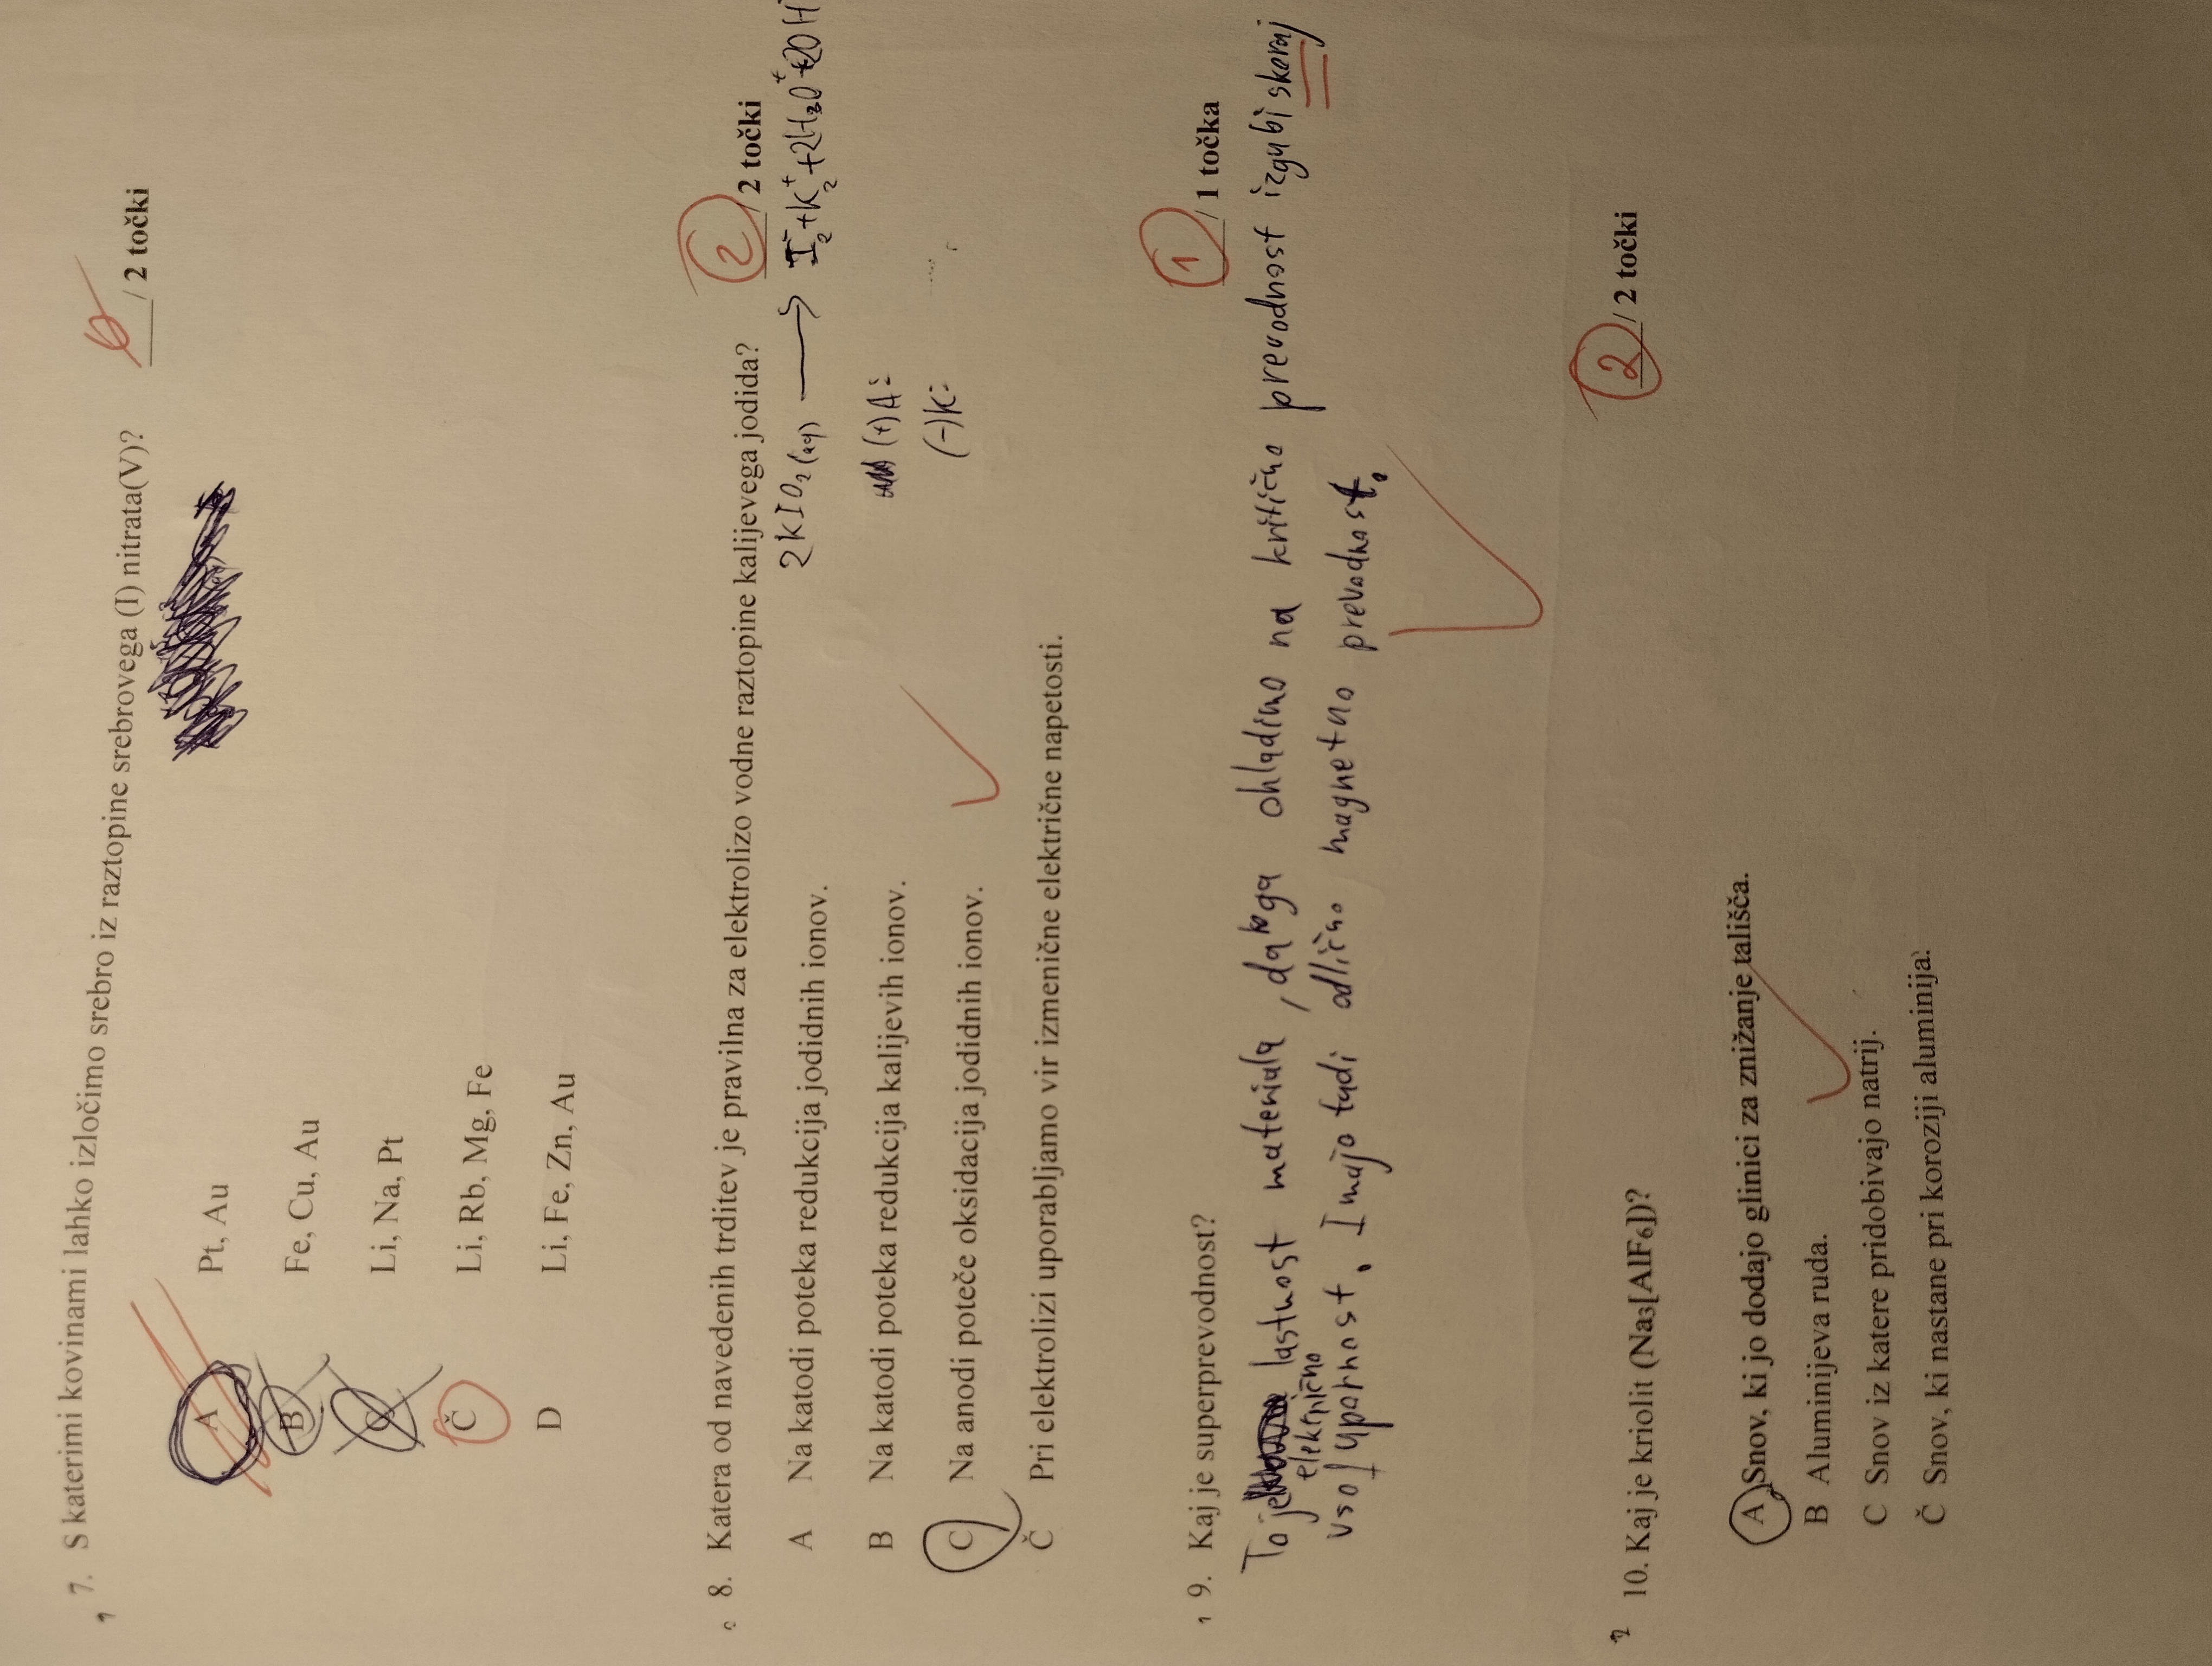 7. S katerimi kovinami lahko izločimo srebro iz raztopine srebrovega (I) nitrata(V)? 0 / 2 točki
A Pt, Au
B Fe, Cu, Au
C Li, Na, Pt
Č Li, Rb, Mg, Fe
D Li, Fe, Zn, Au
8. Katera od navedenih trditev je pravilna za elektrolizo vodne raztopine kalijevega jodida? 2 / 2 točki
A Na katodi poteka redukcija jodidnih ionov.
2KIO₂(aq) → I₂⁻+K₂⁺+2H₃O⁺+2OH
B Na katodi poteka redukcija kalijevih ionov.
(+)A:
C Na anodi poteče oksidacija jodidnih ionov.
(-)K:
Č Pri elektrolizi uporabljamo vir izmenične električne napetosti.
1 9. Kaj je superprevodnost? 1 / 1 točka
To je lastnost materiala, da ko ga ohladimo na kritično prevodnost izgubi skoraj
vso električno upornost. Imajo tudi odlično magnetno prevodnost.
2 10. Kaj je kriolit (Na₃[AlF₆])? 2 / 2 točki
A Snov, ki jo dodajo glinici za znižanje tališča.
B Aluminijeva ruda.
C Snov iz katere pridobivajo natrij.
Č Snov, ki nastane pri koroziji aluminija.